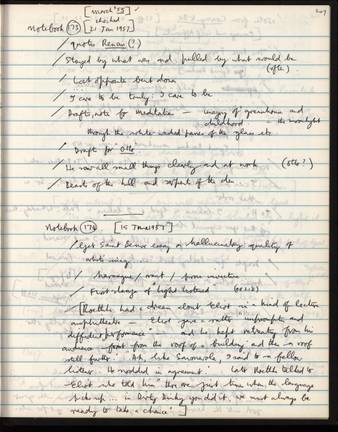 [March '55]
Notebook (173) [21 Jan 1957]
/ quotes Renan (?)
/ Stayed by what was and pulled by what would be
(other)
/ Cat opposite bent down
/ I care to be truly, I care to be
/ Drafts, note for Meditation — imagery of greenhouse and
childhood — the moonlight
through the white-washed panes of the glass etc
/ Draft for Otto
/ He saw all small things clearly and at work (Otto?)
/ Beasts of the hill and serpents of the den
Notebook (174) [15 June 1957]
/ Saint Denis essay on hallucinatory quality of
white wine
/ harangue / rant / prose invective
/ First change of light hastened
[Roethke had a dream about Eliot in a kind of lecture
amphitheatre — Eliot gave a rather "impromptu and
diffident performance" and he kept retreating from his
audience – first from the roof of a building and then a roof
still further. Ah, like Savonarola, I said to a fellow
listener. He nodded in agreement'. Later Roethke talked to
Eliot who told him 'there are just times when the language
picks up... in lively drinks you did it. We must always be
ready to take a chance']